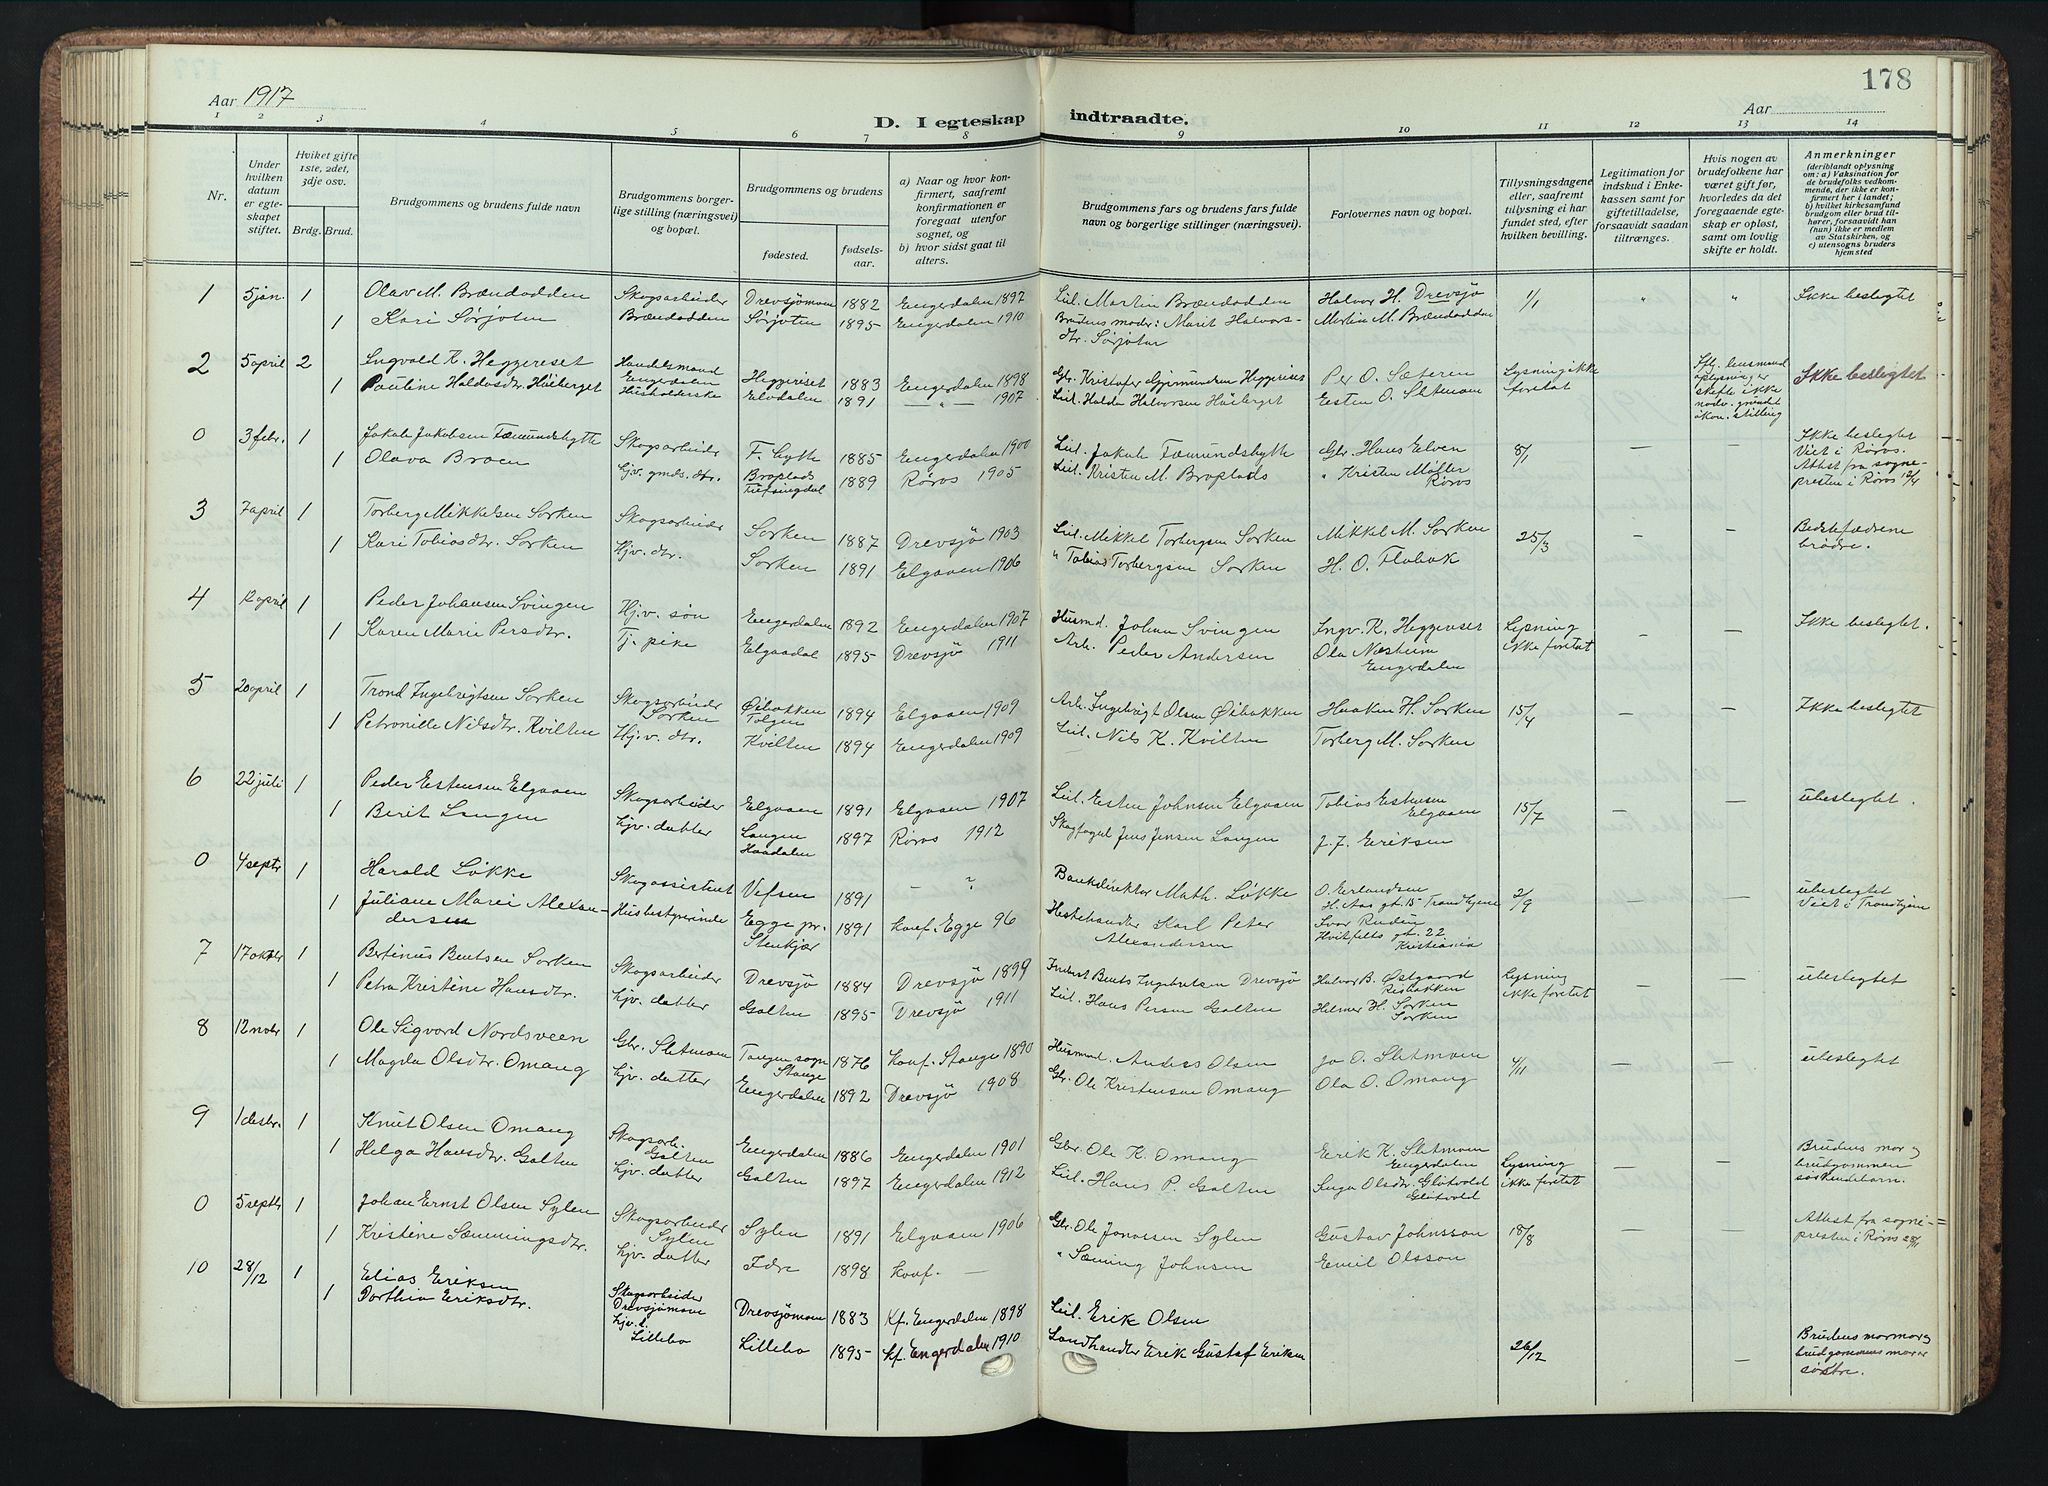 178
Aar 1917
Aar
D. I egteskap indtraadte.
1 2 3 4 5 6 7 8 9 10 11 12 13 14
Nr.
Under hvilken datum er egteskapet stiftet.
Hviket gifte 1ste, 2det, 3dje osv.
Brdg. Brud.
Brudgommens og brudens fulde navn
Brudgommens borgerlige stilling (næringsvei) og bopæl.
Brudgommens og brudens
fødested.
fødselsaar.
a) Naar og hvor konfirmert, saafremt konfirmationen er foregaat utenfor sognet, og
b) hvor sidst gaat til alters.
Brudgommens fars og brudens fars fulde navn og borgerlige stillinger (næringsvei).
Forlovernes navn og bopæl.
Tillysningsdagene eller, saafremt tillysning ei har fundet sted, efter hvilken bevilling.
Legitimation for indskud i Enkekassen samt for giftetilladelse, forsaavidt saadan tiltrænges.
Hvis nogen av brudefolkene har været gift før, hvorledes da det foregaaende egteskap er opløst, samt om lovlig skifte er holdt.
Anmerkninger
(deriblandt oplysning om: a) Vaksination for de brudefolks vedkommende, der ikke er konfirmert her i landet; b) hvilket kirkesamfund brudgom eller brud tilhører, forsaavidt han (hun) ikke er medlem av Statskirken, og c) utensogns bruders hjemsted
1 5 jan. 1 Olav M. Brændodden Skogsarbeider Drevsjømoen 1882 Engerdalen 1897 Lul. Martin Brændodden Halvor H. Drevsjø 1/1 " " Ikke beslegtet
1 Kari Sørjoten Brændodden Sørjoten 1895 Engerdalen 1910 Brudens moder: Marit Halvorsdtr. Sørjoten Martin M. Brændodden
2 5 april 2 Ingvald K. Heggeriset Handelsmand Engerdalen Heggeriset 1883 Engerdalen 1898 Gbr. Kristofer Gjermundsen Heggeriset Per O. Sæteren Lysning ikke foretat Ikke beslegtet
1 Pauline Haldosdtr. Høiberget Husholderske Elvdalen 1891 — " — 1907 Lul. Haldo Halvorsen Høiberget Esten O. Sletmoen
0 3 febr. 1 Jakob Jakobsen Fæmundshytte Skogsarbeider F. hytte 1885 Engerdalen 1900 Lul. Jakob Fæmundshytte Gbr. Hans Elven 8/1 — — Ikke beslegtet Viet i Røros. Attest fra sognepresten i Røros 12/4
1 Olava Broen hjv. gmds. dtr. Broplads Tufsingdal 1889 Røros 1905 Lul. Kristen M. Broplads " Kristen Møller Røros
3 7 april 1 Torberg Mikkelsen Sorken Skogsarbeider Sorken 1887 Drevsjø 1903 Lul. Mikkel Torbergsen Sorken Mikkel M. Sorken 25/3 — — Bedstefædrene brødre.
1 Kari Tobiasdtr. Sorken Hjv. dtr. Sorken 1891 Elgaaen 1906 " Tobias Torbergsen Sorken H. O. Flobak
4 12 april 1 Peder Johansen Svingen Hjv. søn Engerdalen 1892 Engerdalen 1907 Husmd. Johan Svingen Ingv. K. Heggeriset Lysning ikke foretat — — Ikke beslegtet.
1 Karen Marie Persdtr. Tj. pike Elgaadal 1895 Drevsjø 1911 Arb. Peder Andersen Ola Næstmo Engerdalen
5 20 april 1 Trond Ingebrigtsen Sorken Skogsarbeider Sorken Øibakken Tolgen 1894 Elgaaen 1909 Arb. Ingebrigt Olsen Øibakken Haaken H. Sorken 15/4 — — Ikke beslegtet
1 Petronille Nilsdtr. Kvilten Hjv. dtr. Kvilten 1894 Engerdalen 1909 Lul. Nils K. Kvilten Torberg M. Sorken
6 22 juli 1 Peder Estensen Elgaaen Skogsarbeider Elgaaen 1891 Elgaaen 1907 Lul. Esten Johnsen Elgaaen Tobias Estensen Elgaaen 15/7 — — ubeslegtet.
1 Berit Langen hjv. datter Langen Haadalen 1897 Røros 1912 Skogfogd Jens Jensen Langen J. J. Eriksen
0 4 septbr 1 Harald Løkke Skogassistent Vefsen 1891 — ? Bankdirektør Math. Løkke O. Erlandsen H. Aas gt. 15 Trondhjem 2/9 — — ubeslegtet Viet i Trondhjem
1 Juliane Marei Alexandersen Husbestyrerinde Egge pr. Stenkjær 1891 konf. Egge 96 Hestehandler Karl Peter Alexandersen Ivar Ruden Hvitfelts gt. 22 Kristiania
7 17 oktbr 1 Bertinus Bentsen Sorken Skogsarbeider Drevsjø 1884 Drevsjø 1899 Inderst Bent Ingebretsen Drevsjø Halvor B. Østgaard Risbakken Lysning ikke foretat — — ubeslegtet
1 Petra Kristine Hansdtr. hjv. datter Galten 1895 Drevsjø 1911 Lul. Hans Persen Galten Helmer H. Sorken Sorken
8 12 novbr 1 Ole Sigvard Nordsveen Gbr. Sletmoen Tangen sogn Stange 1876 konf. Stange 1890 Husmd. Anders Olsen Jo O. Sletmoen 4/11 — — ubeslegtet
1 Magda Olsdtr. Omang hjv. datter Engerdalen 1892 Drevsjø 1908 Gbr. Ole Kristensen Omang Ola O. Omang
9 1 desbr. 1 Knut Olsen Omang Skogsarb. Galten Engerdalen 1886 Engerdalen 1901 Gbr. Ole K. Omang Erik K. Sletmoen Engerdalen Lysning ikke foretat — — Brudens mor og brudgommen søskendebarn.
1 Helga Hansdtr. Galten hjv. datter Galten 1897 Engerdalen 1912 Lul. Hans P. Galten Inga Olsdtr. Gløtvold Gløtvold
0 5 septbr 1 Johan Ernst Olsen Sylen Skogsarbeider Sylen Sylen 1891 Elgaaen 1906 Gbr. Ole Jonassen Sylen Gustav Johnsson 18/8 — — Attest fra sognepresten i Røros 28/1
1 Kristine Sæmmingsdtr. hjv. datter Idre 1898 konf. — " Sæming Johnsen Emil Olsson
10 28/12 1 Elias Eriksen Skogsarbeider Drevsjømoen Drevsjømoen 1883 Kf. Engerdalen 1898 Lul. Erik Olsen 26/12 — Brudens mormor og brudgommens mor er søstre.
1 Dorthea Eriksdtr. hjv. d. Lillebo Lillebo 1895 kf. Engerdalen 1910 Landhandler Erik Gustaf Eriksen